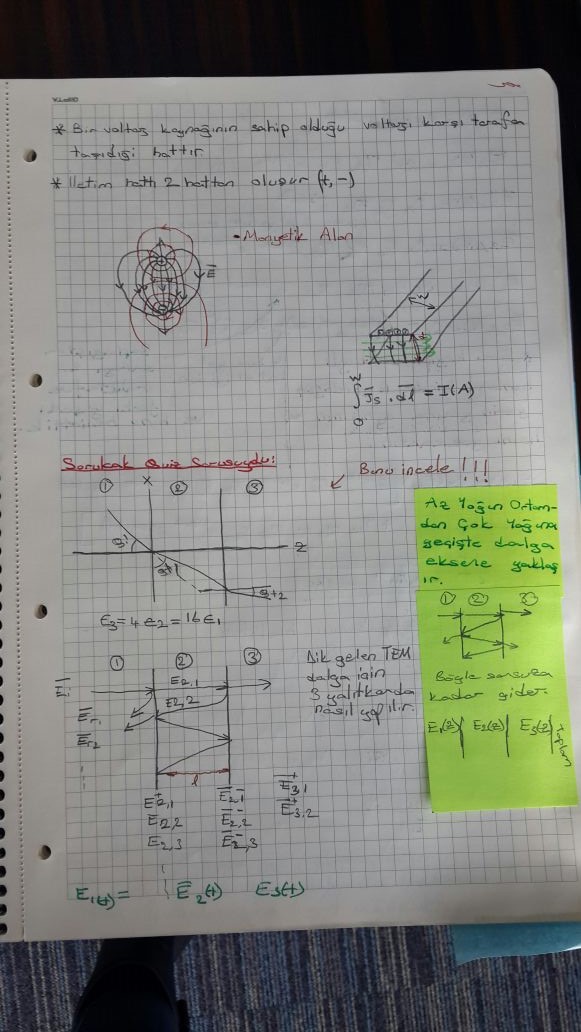 * Bir voltaj kaynağının sahip olduğu voltajı karşı tarafa
taşıdığı hattır.
* İletim hattı 2 hattan oluşur (+, -)
- Manyetik Alan
E
w
w
∫ Js . dl = I(A)
0
Sorulcak Quiz Sorusuydu:
↙ Bunu incele !!!
x
① ② ③
z
ε3 = 4 ε2 = 16 ε1
Az Yoğun Ortam-
dan Çok Yoğuna
geçişte dalga
eksene yaklaş
ır.
① ② ③
Böyle sonsuza
kadar gider.
E1(z) | E2(z) | E3(z) | Toplam
① ② ③
Ei
E2,1
E2,2
Er1
Er2
Dik gelen TEM
dalga için
3 yalıtkanda
nasıl yapılır.
l
E2,1+ E2,1- E3,1+
E2,2 E2,2- E3,2+
E2,3 E2,3-
E1(t) = E2(t) E3(t)